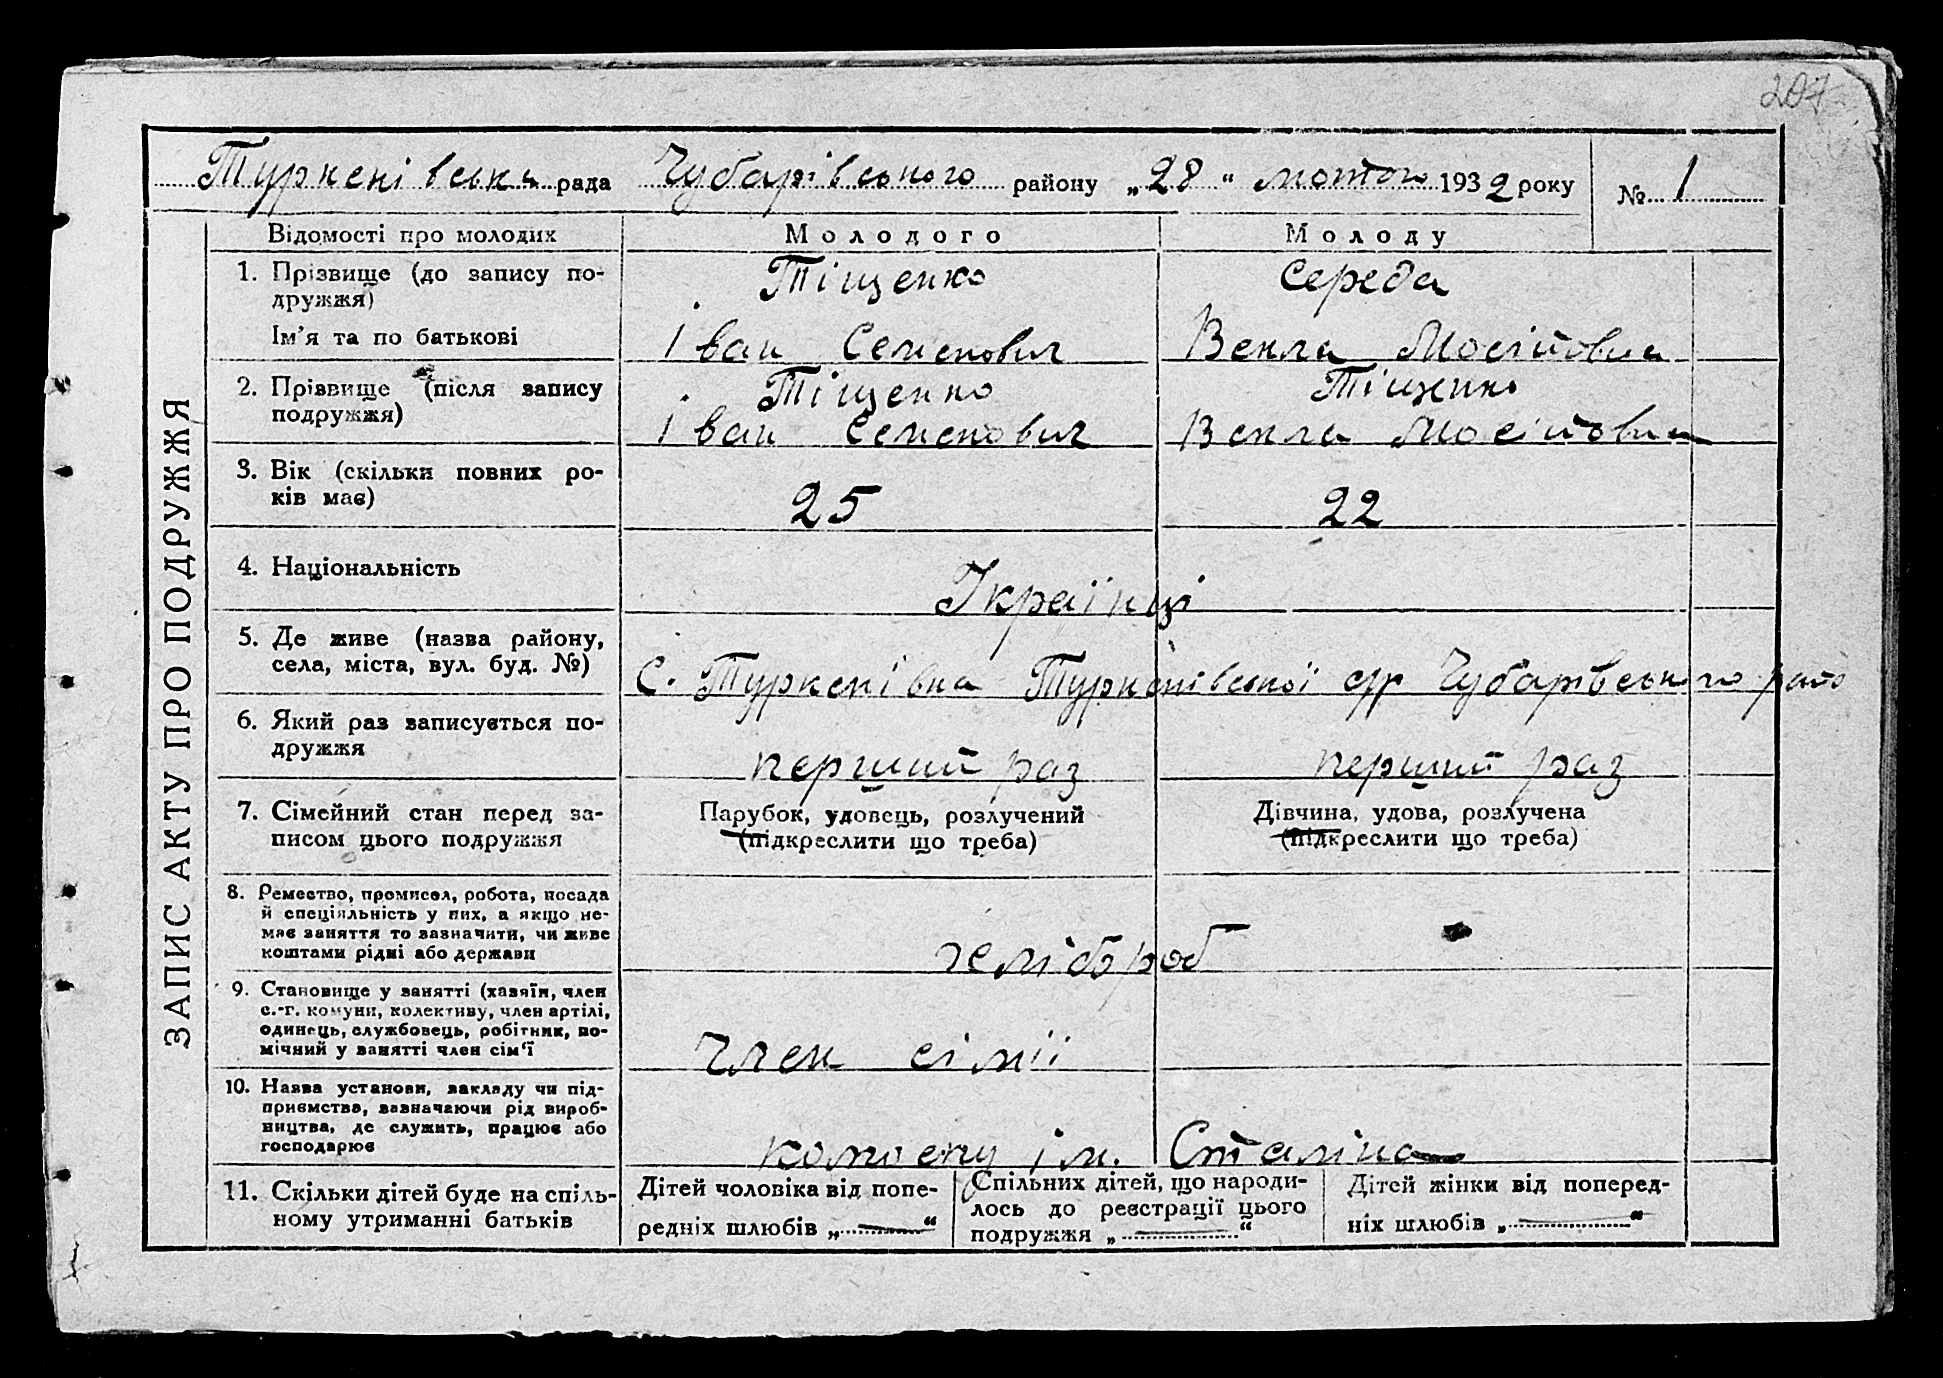 207
Туркенівська рада Чубарівського району „28“ лютого 1932 року № 1
ЗАПИС АКТУ ПРО ПОДРУЖЖЯ
Відомості про молодих
Молодого
Молоду
1. Прізвище (до запису по-
дружжя)
Тіщенко
Середа
Ім’я та по батькові
Іван Семенович
Векла Мосійовна
2. Прізвище (після запису
подружжя)
Тіщенко
Іван Семенович
Тіщенко
Векла Мосійовна
3. Вік (скільки повних ро-
ків має)
25
22
4. Національність
Українці
5. Де живе (назва району,
села, міста, вул. буд. №)
С. Туркенівка Туркенівської с/р Чубарівського
6. Який раз записується по-
дружжя
перший раз
перший раз
7. Сімейний стан перед за-
писом цього подружжя
Парубок, удовець, розлучений
(підкреслити що треба)
Дівчина, удова, розлучена
(підкреслити що треба)
8. Ремество, промисел, робота, посада
й спеціяльність у них, а якщо не-
має заняття то зазначити, чи живе
коштами рідні або держави
хлібороб
9. Становище у занятті (хазяїн, член
с.-г. комуни, колективу, член артілі,
одинець, службовець, робітник, по-
мічний у занятті член сім‘ї
Член сімії
10. Назва установи, закладу чи під-
приємства, зазначаючи рід вироб-
ництва, де служить, працює або
господарює
ім. Сталіна
11. Скільки дітей буде на спіль-
ному утриманні батьків
Дітей чоловіка від попе-
редніх шлюбів „—“
Спільних дітей, що народи-
лось до реєстрації цього
подружжя „—“
Дітей жінки від поперед-
ніх шлюбів „—“